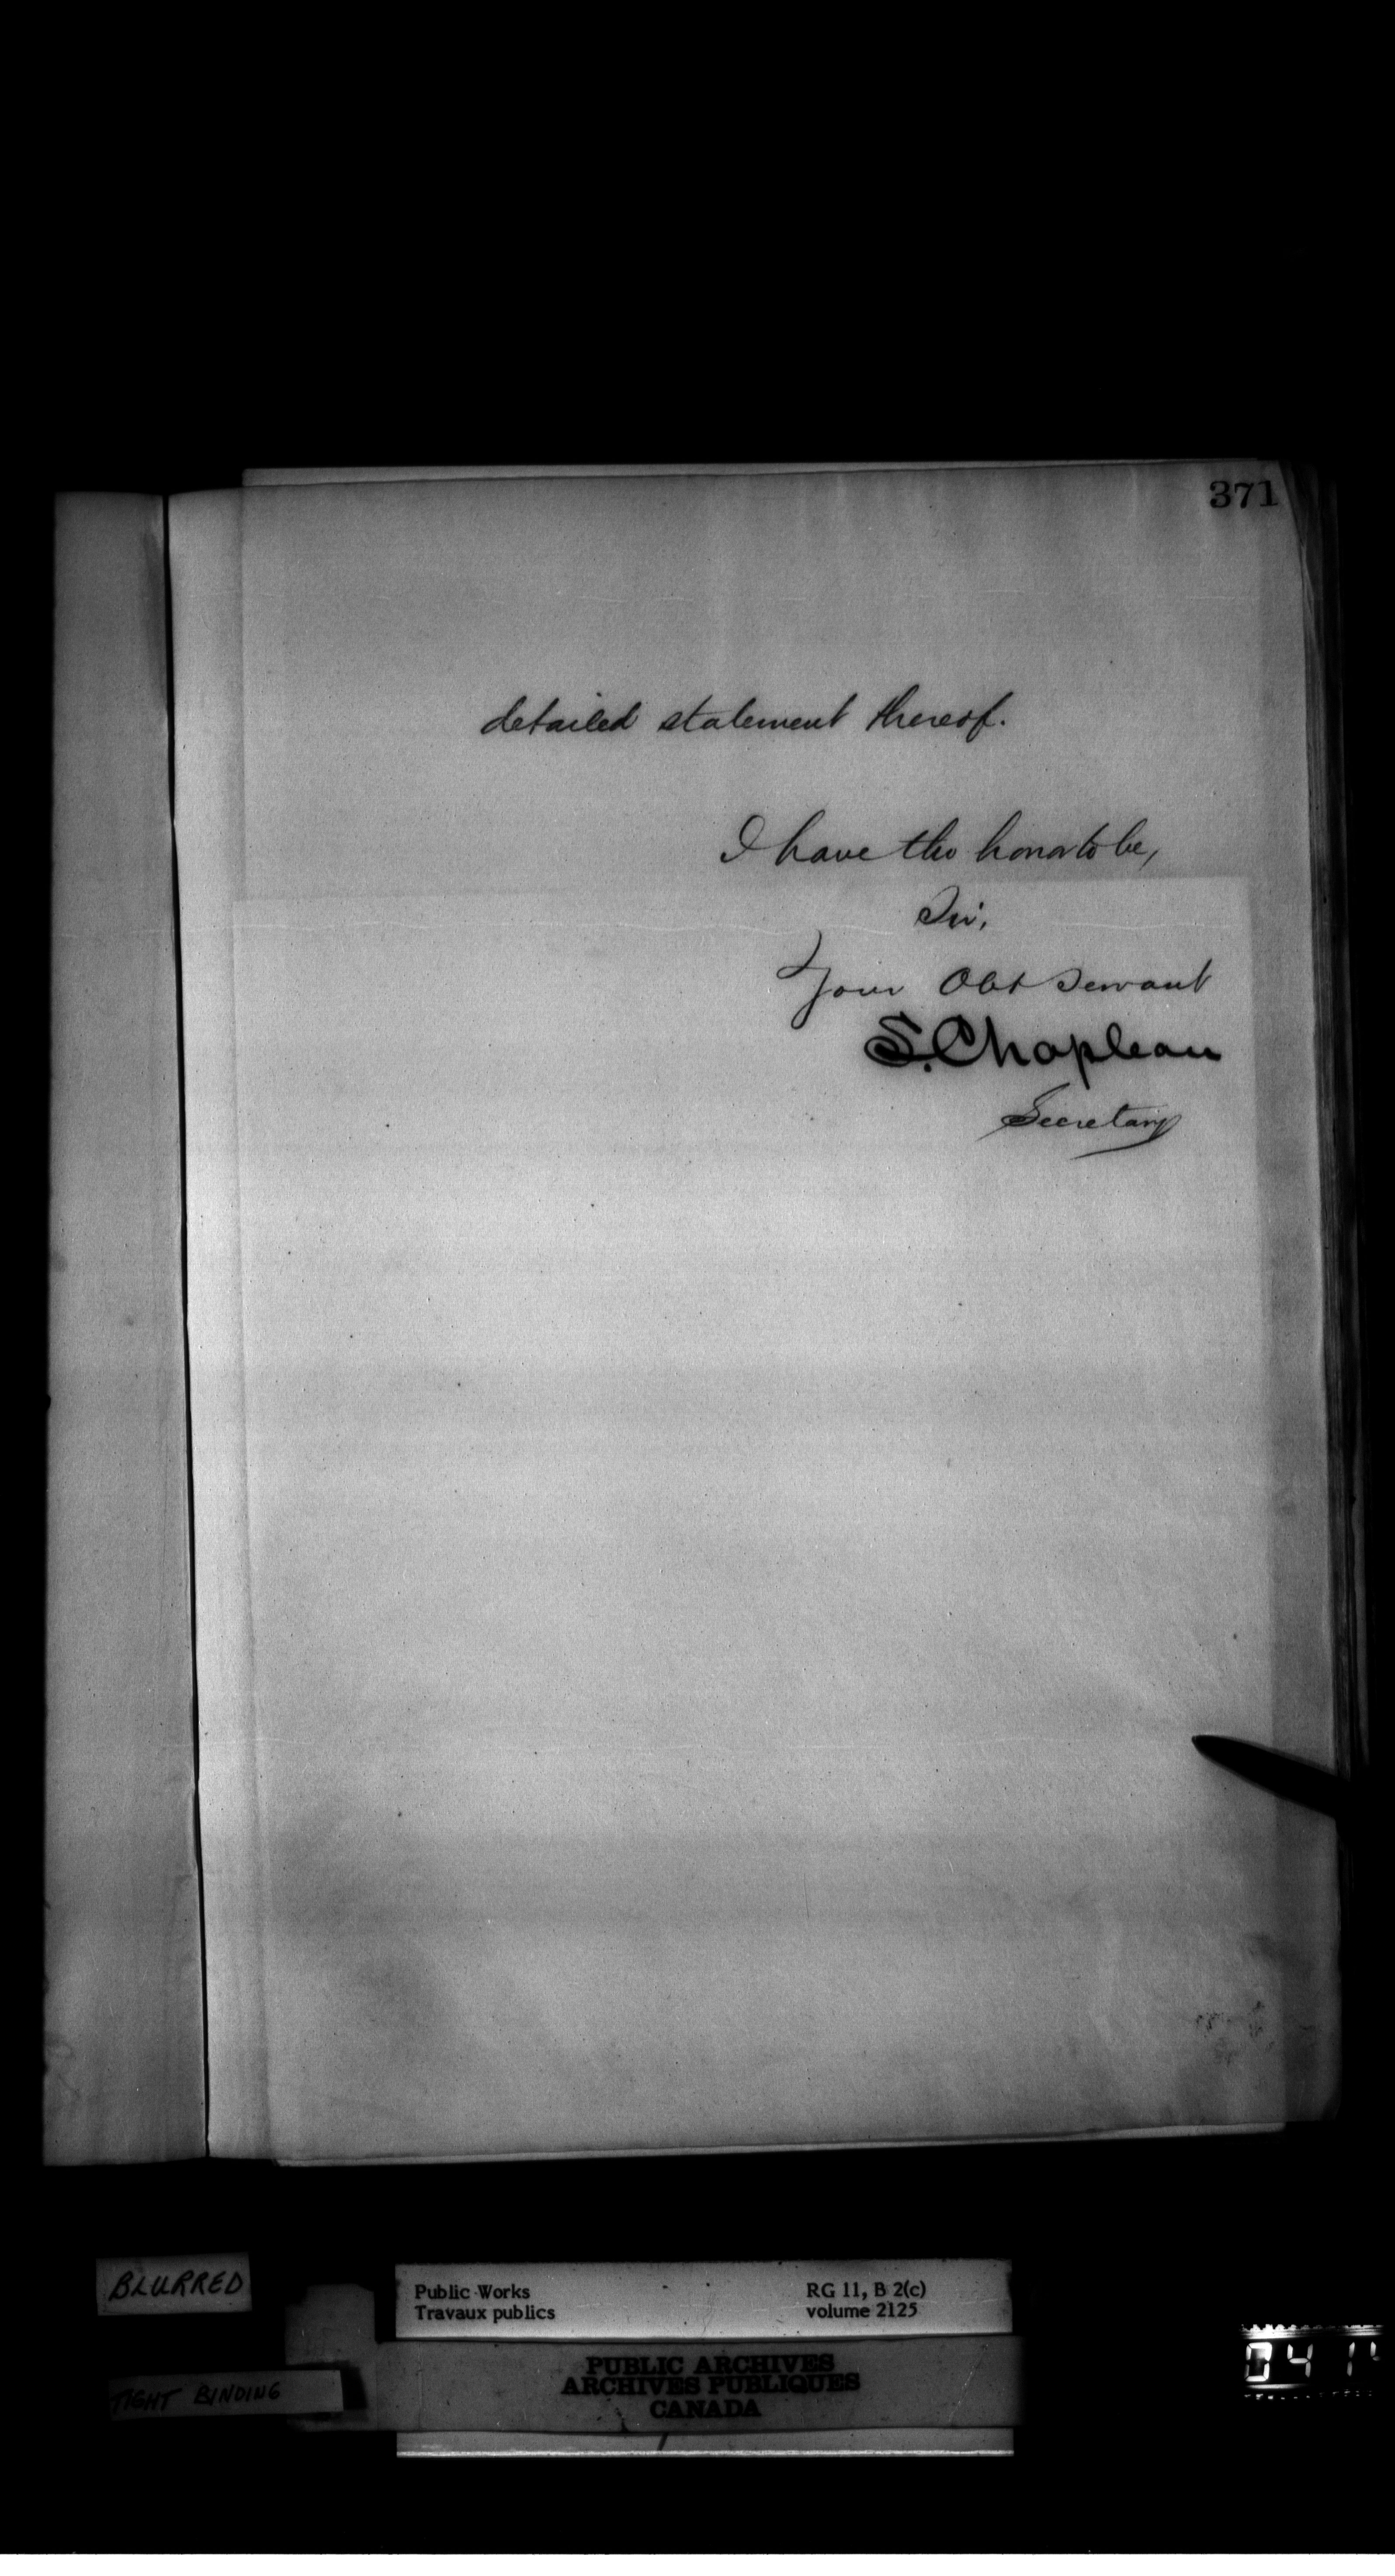 371
detailed statement thereof.
I have the honor to be,
Sir,
Your Obt Servant
S. Chapleau
Secretary
BLURRED
Public Works
Travaux publics
RG 11, B 2(c)
volume 2125
TIGHT BINDING
PUBLIC ARCHIVES
ARCHIVES PUBLIQUES
CANADA